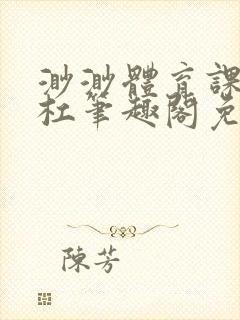 渺渺體育課
杜筆趣閣免
陳芳